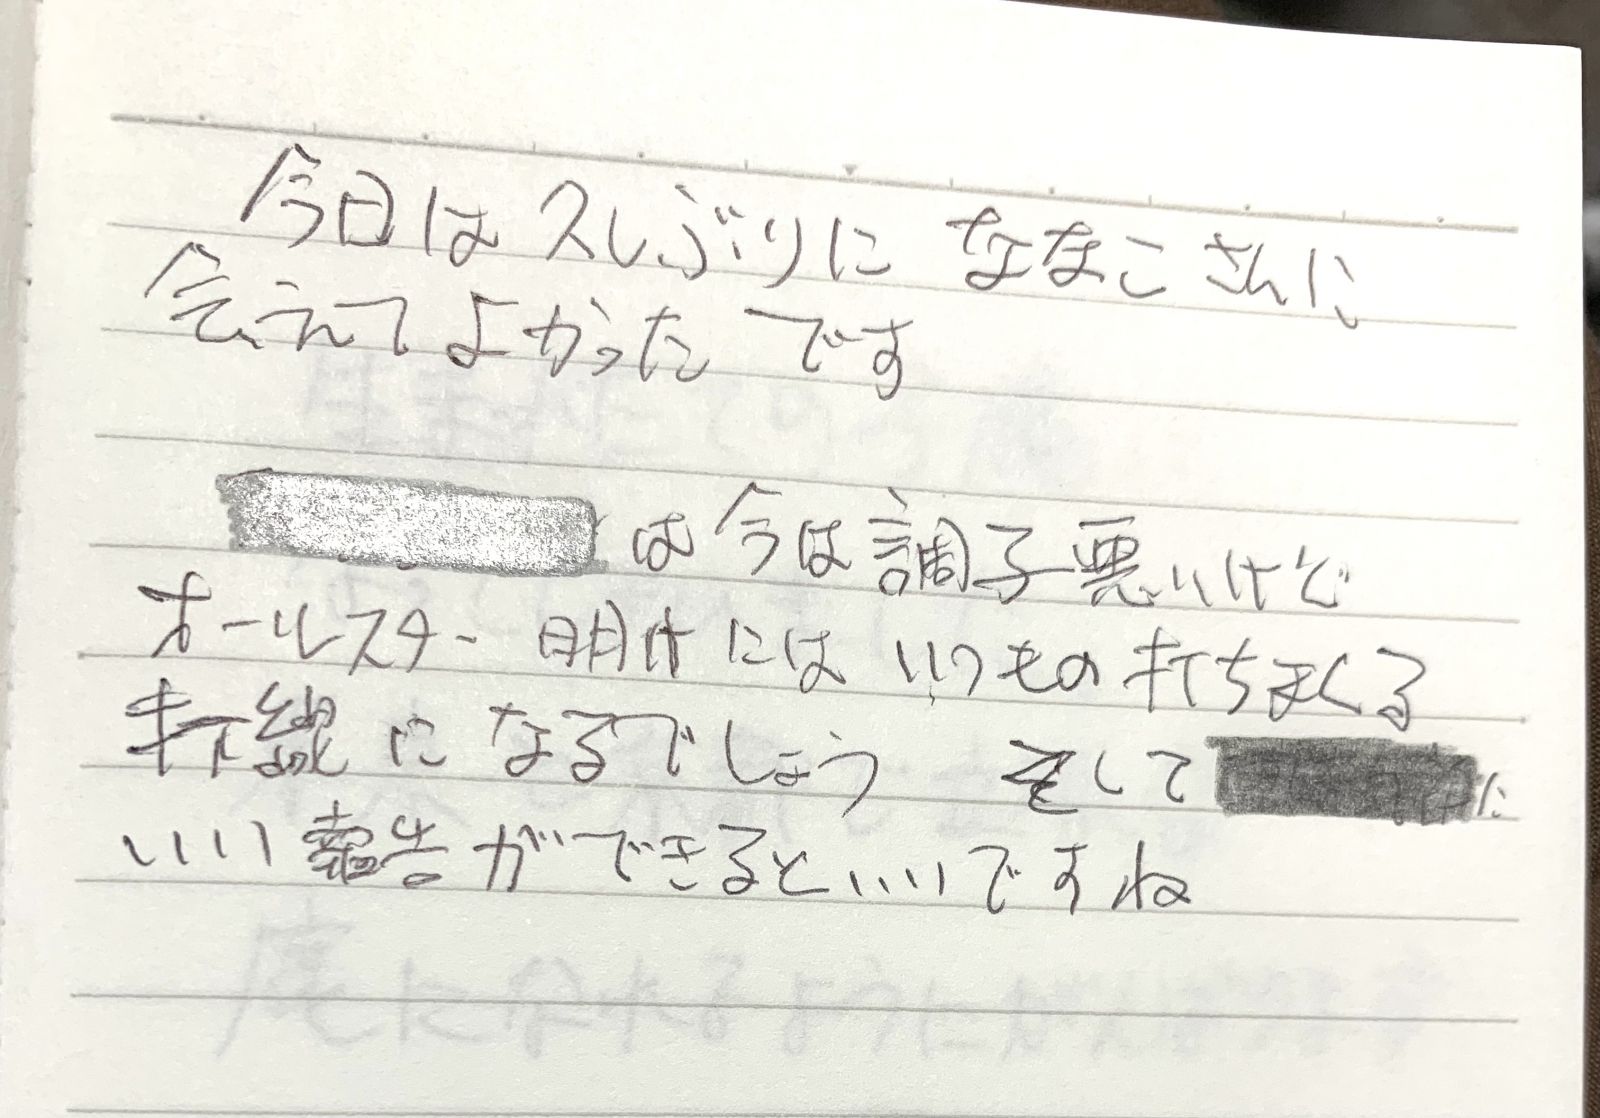 今日は久しぶりに ななこさんに
会えてよかったです
は今は調子悪いけど
オールスター明けには いつもの打ちまくる
打線になるでしょう そして に
いい報告ができるといいですね